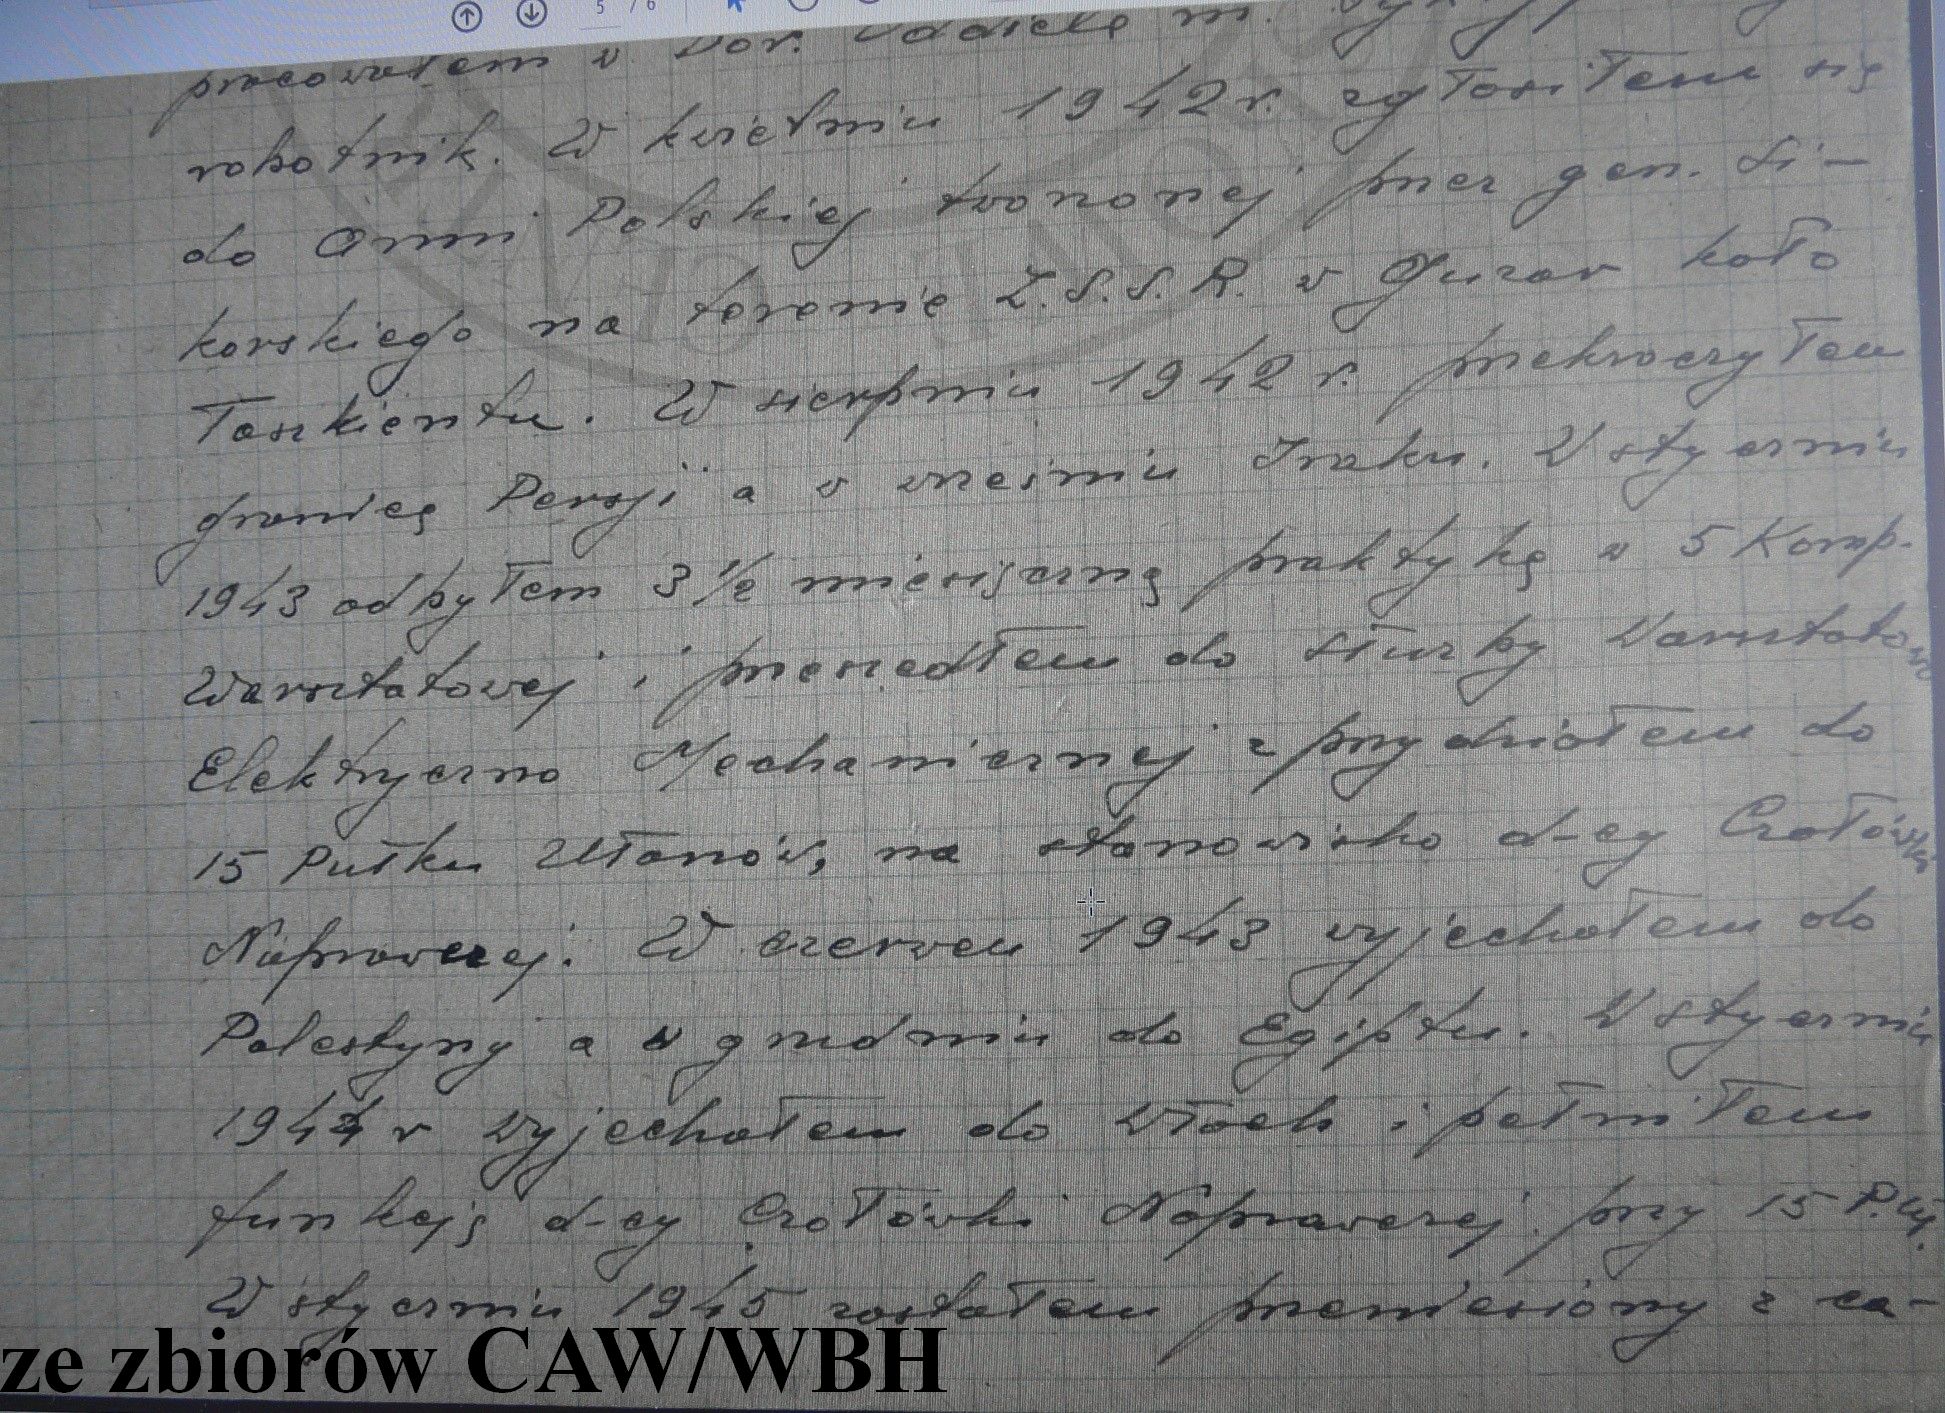 5 / 6
pracowałem w
robotnik. W kwietniu 1942 r. zgłosiłem się
do Armii Polskiej tworzonej przez gen. Si-
korskiego na terenie Z.S.S.R. w Guzar koło
Taszkientu. W sierpniu 1942 r. przekroczyłem
granicę Persji a w wrześniu Iraku. W styczniu
1943 odbyłem 3 1/2 miesięczną praktykę w 5 Komp.
Warsztatowej i przeszedłem do służby Warsztatowo
Elektryczno Mechanicznej z przydziałem do
15 Pułku Ułanów, na stanowisko d-cy Czołówki
Naprawczej. W czerwcu 1943 wyjechałem do
Palestyny a w grudniu do Egiptu. W styczniu
1944 r wyjechałem do Włoch i pełniłem
funkcję d-cy Czołówki Naprawczej przy 15 P.Uł.
W styczniu 1945 zostałem przeniesiony z ca-
ze zbiorów CAW/WBH